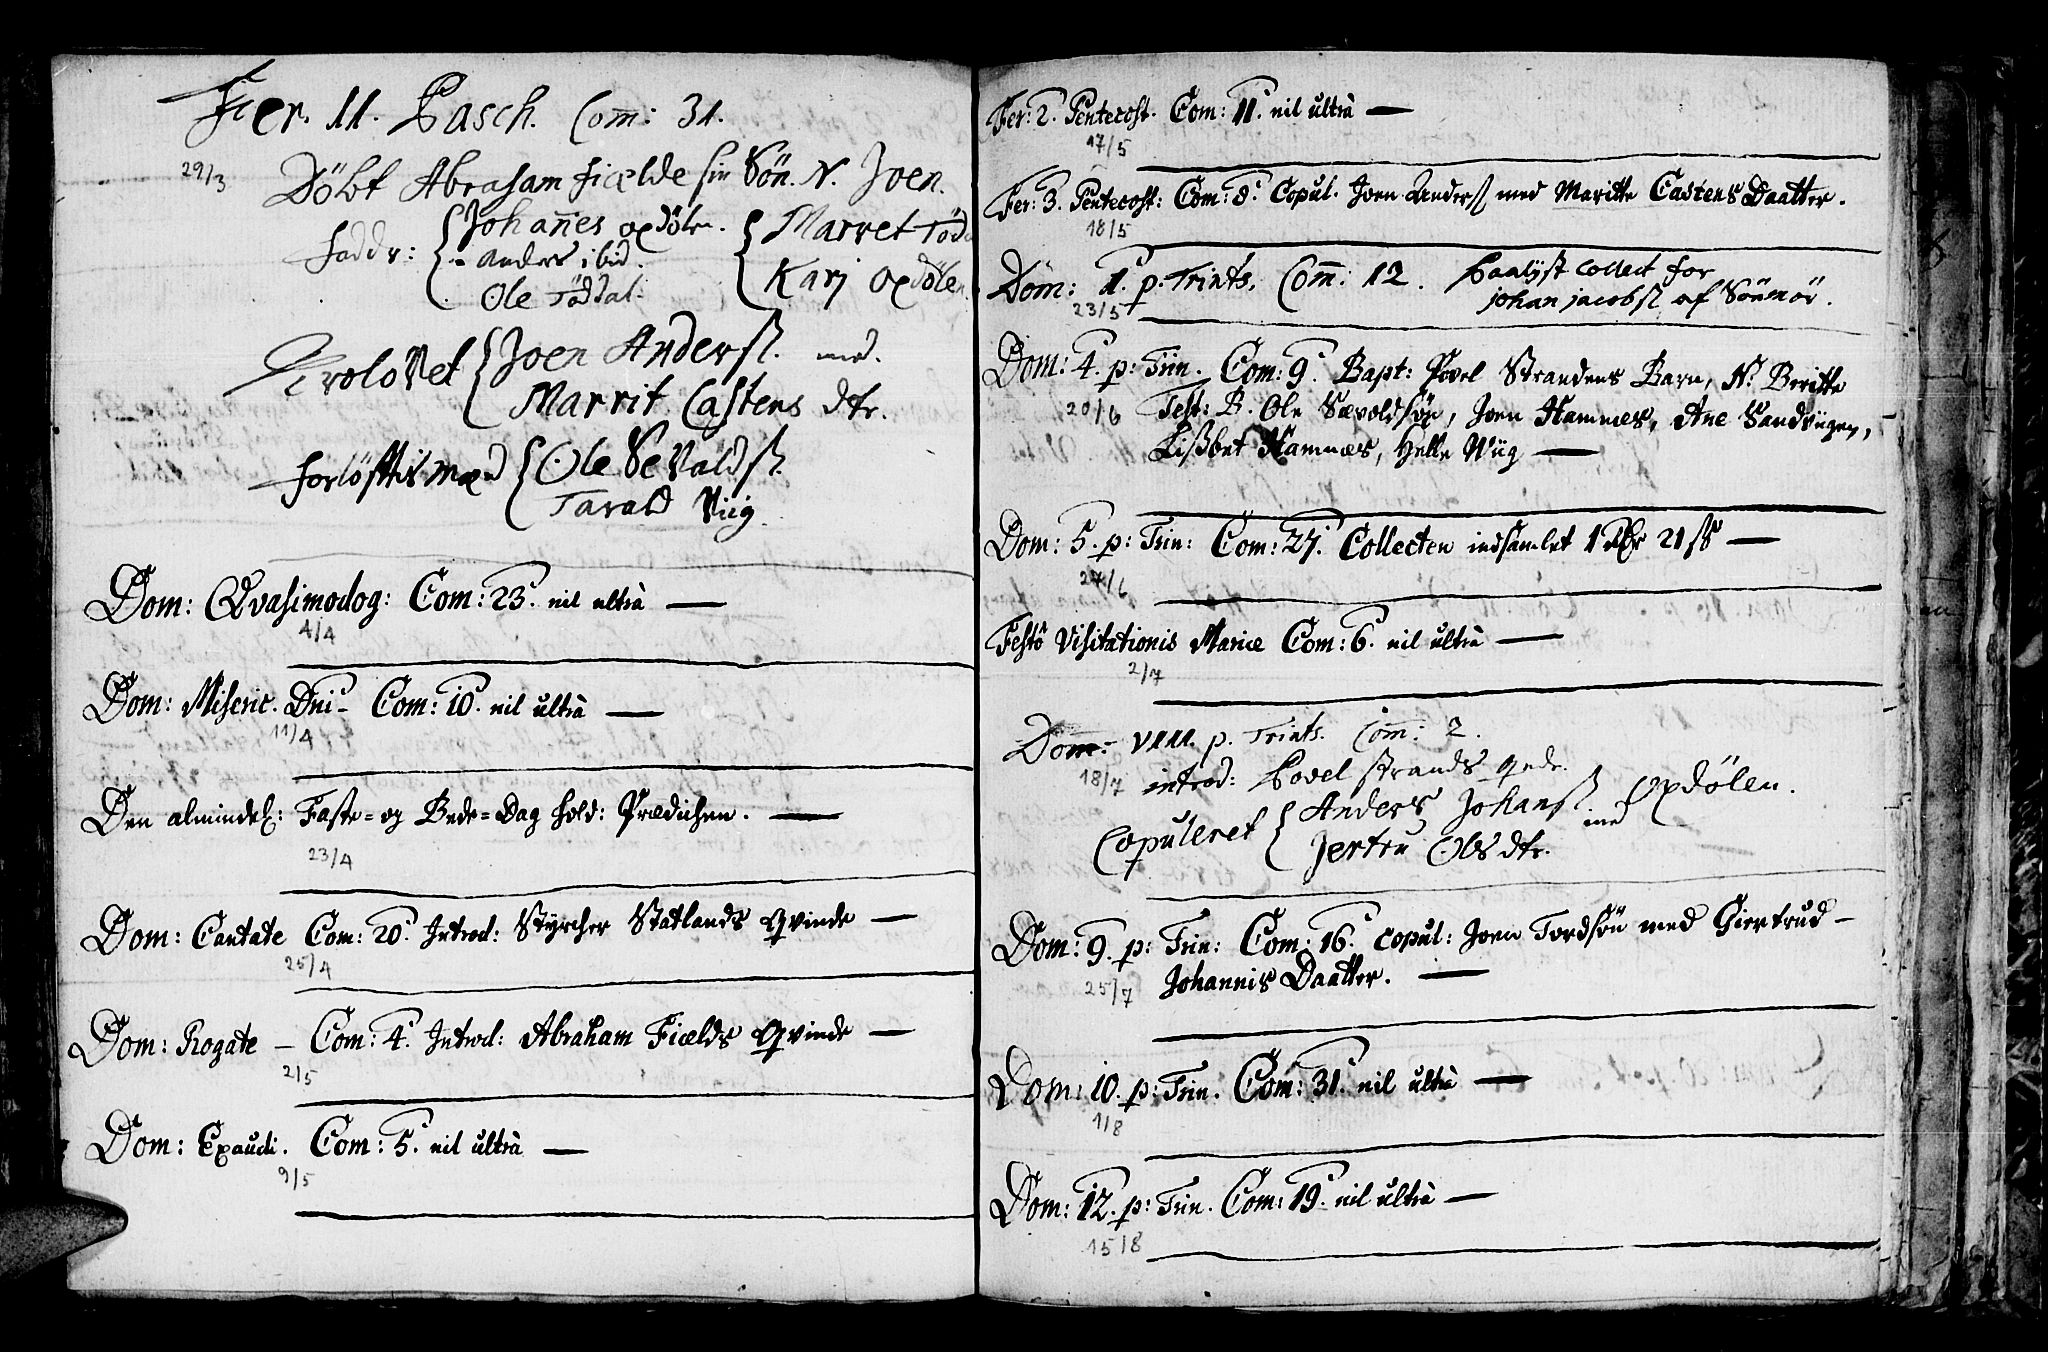 Fer. 11. Pasch. Com̄: 31.
29/3
Döbt Abraham Fielde sin Sön. N. Joen.
Faddr: Johan̄es opdöln. Marret Tödd
Anders ibid.
Ole Töddal. Karj Opdölen
Trolovet Joen Anderss. med.
Marrit Castens dtr.
Forlöfftis mænd Ole Sevaldss.
Tarald Viig.
Dom: Qvasimodog: Com: 23. nil ultrà —
4/4
Dom: Miseric. Dni- Com: 10. nil ultrà —
11/4
Den almindel: Faste= og Bede=Dag hold: Prædichen. —
23/4
Dom: Cantate Com: 20. Introd: Styrcher Statlands Qvinde —
25/4
Dom: Rogate — Com: 4. Introd: Abraham Fields Qvinde —
2/5
Dom: Exaudi. Com: 5. nil ultrà —
9/5
Fer: 2. Pentecost. Com: 11. nil ultrà —
17/5
Fer: 3. Pentecost: Com: 8. Copul. Joen Anderss med Maritte Castens Daatter.
18/5
Dom: 1. p. Trinits. Com̄: 12. Paalyst collect for
23/5
johan jacobss af Sönmör.
Dom: 4. p: Trin. Com: 9. Bapt: Povel Strandens Barn, N: Beritte
20/6
Test: B. Ole Sævoldsøn, Joen Hammes, Ane Sandvigen,
Lissbet Hammes, Helle Wiig —
Dom: 5. p: Trin: Com: 27. Collecten indsamlet 1 Rdr 21 ss —
27/6
Festo Visitationis Mariæ Com: 6. nil ultrà —
2/7
Dom: VIII. p. Trinits. Com̄: 2.
18/7
introd: Povel strands qvdr.
Copuleret Anders Johanss med Opdölen.
Jertru Olsdtr.
Dom: 9. p: Trin: Com: 16. copul: Joen Tordsøn med Giertrud-
25/7
Johannis Daatter. —
Dom: 10. p: Trin. Com: 31. nil ultrà —
1/8
Dom: 12. p: Trin. Com: 19. nil ultrà —
15/8